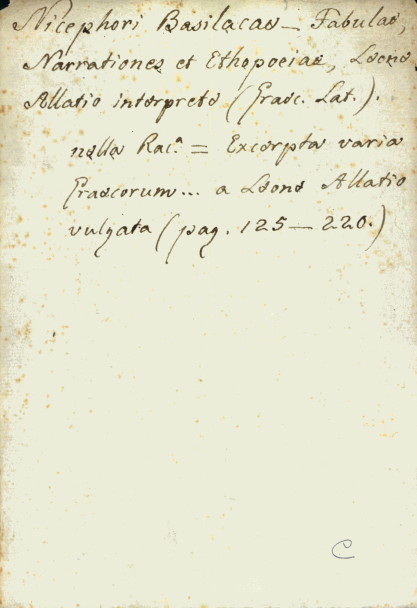 Nicephori Basilacae — Fabulae,
Narrationes et Ethopoeiae, Leone
Allatio interprete (Graec. Lat.).
nella Rac.ª = Excerpta varia
Graecorum... a Leone Allatio
vulgata (pag. 125 — 220.)
C